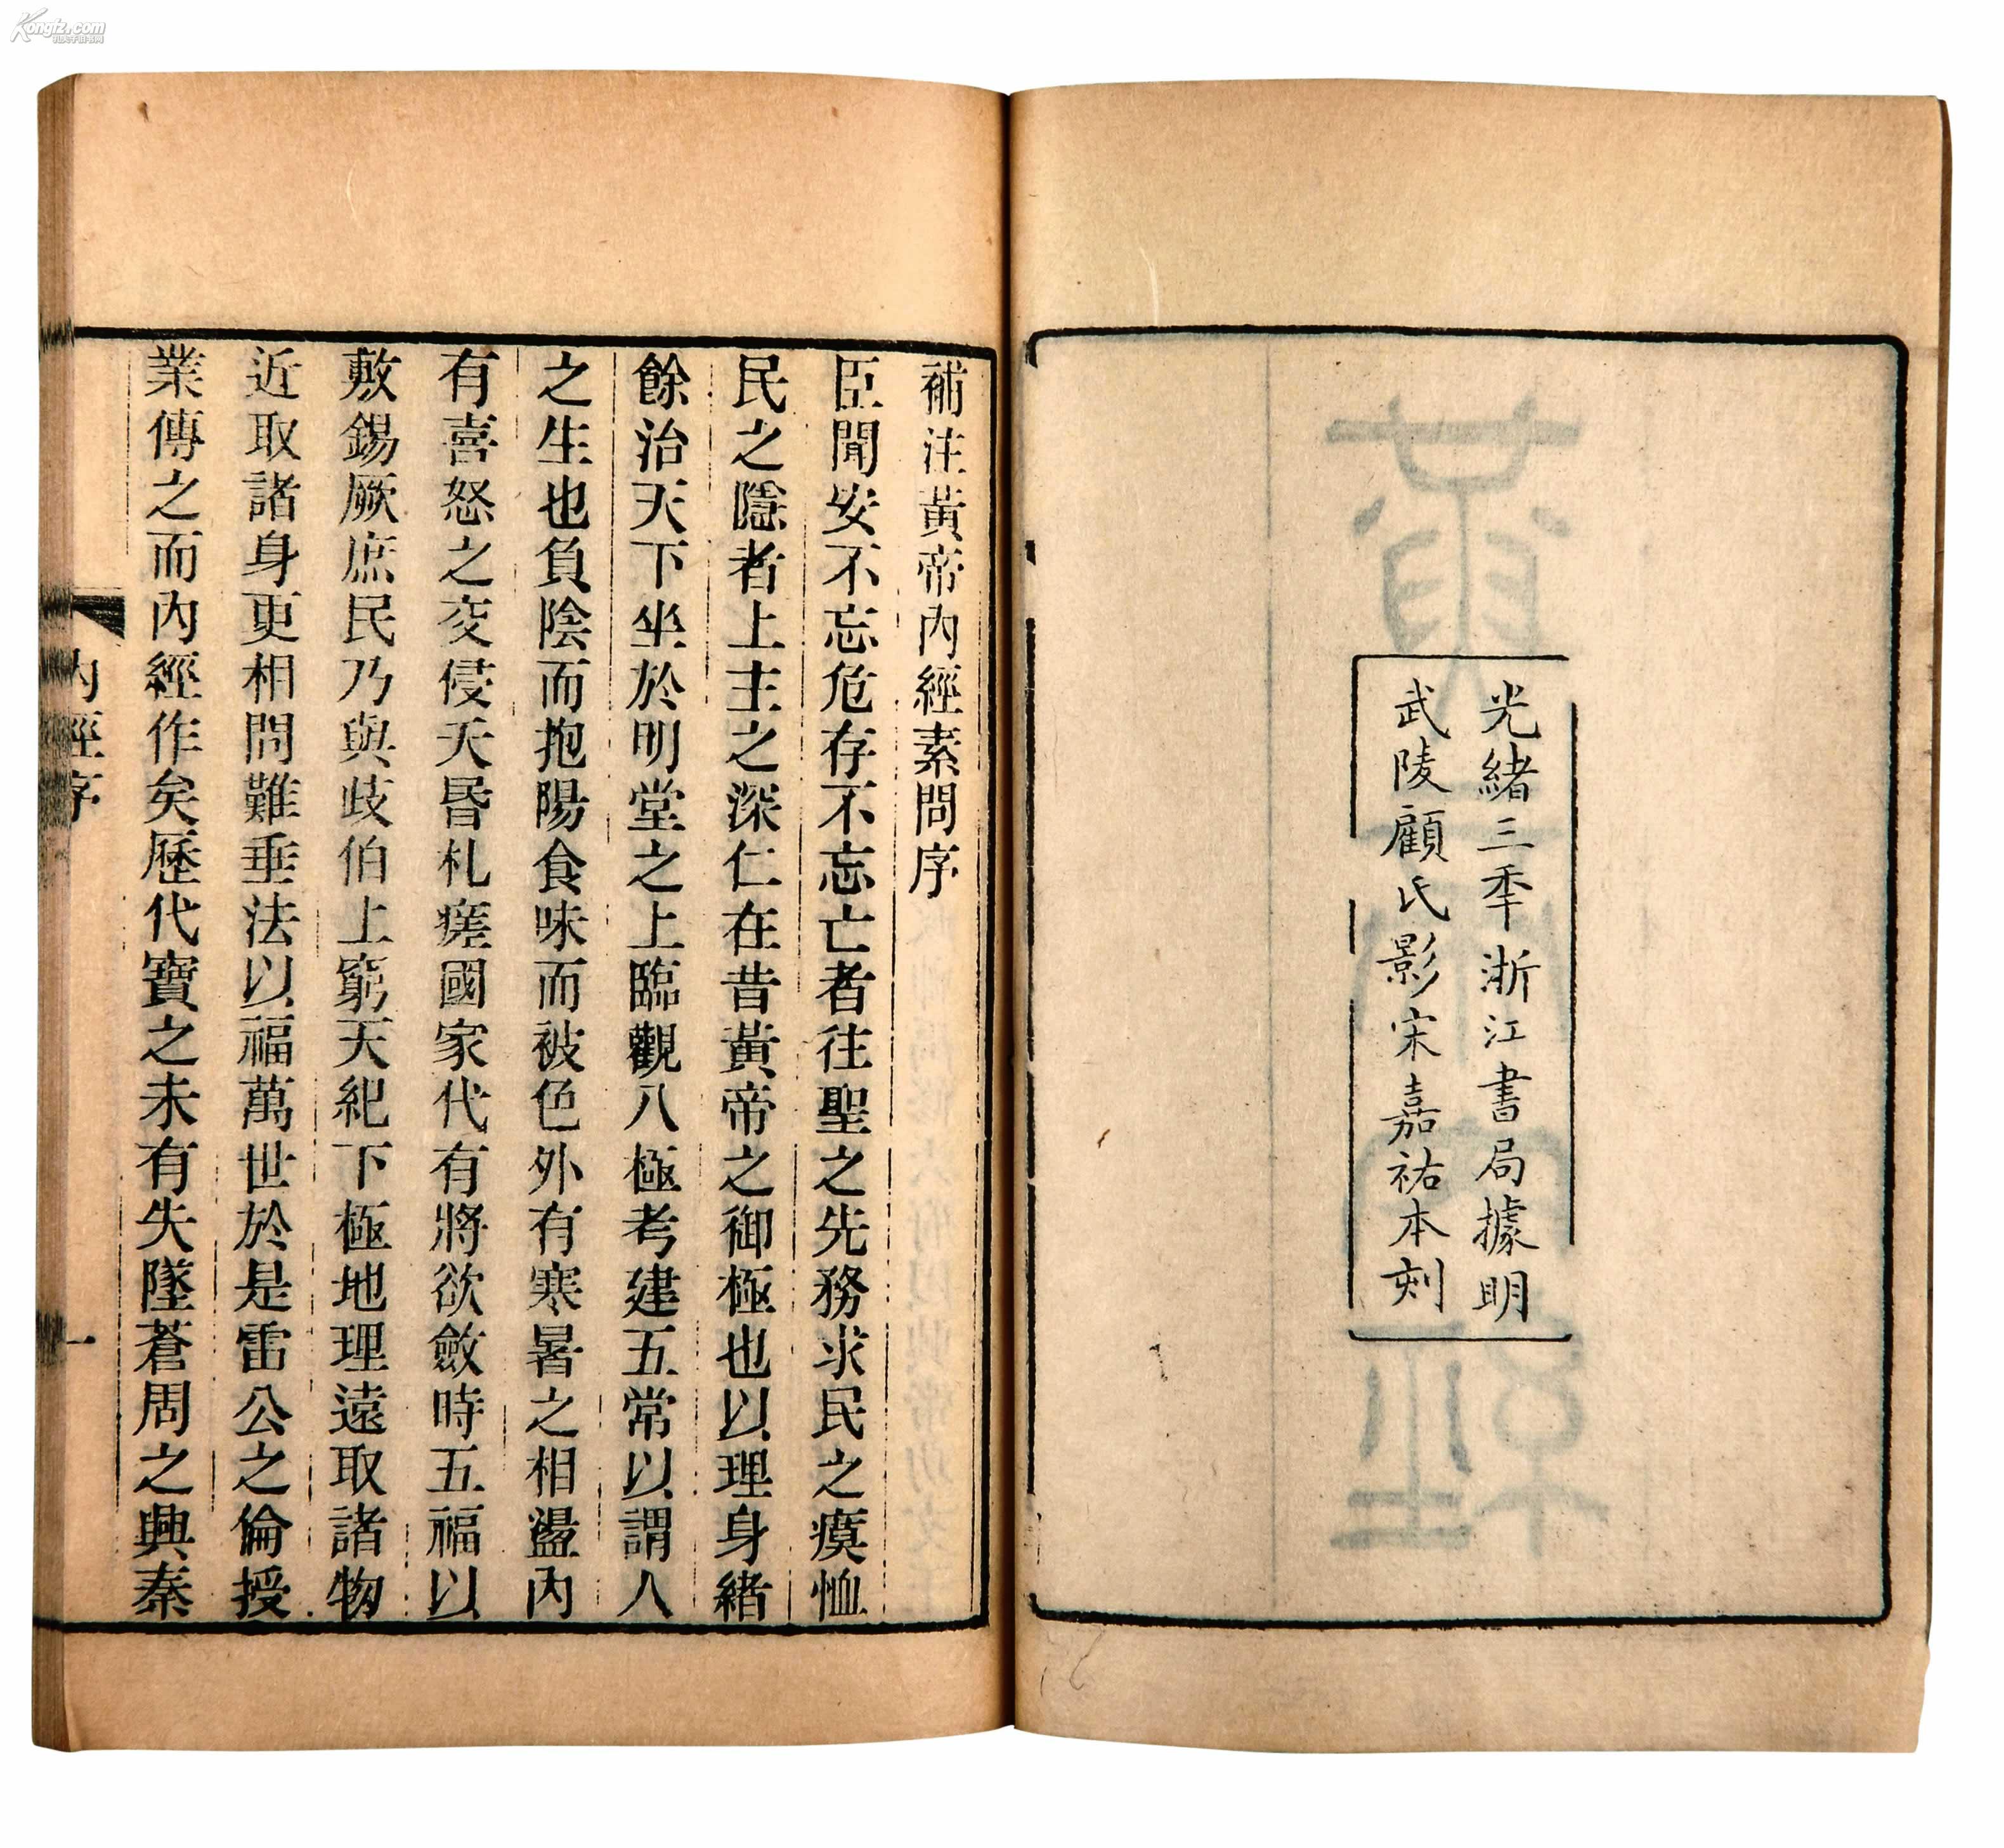 Kongfz.com
光緒三季浙江書局據明
武陵顧氏影宋嘉祐本刻
補注黃帝內經素問序
臣聞安不忘危存不忘亡者往聖之先務求民之瘼恤
民之隱者上主之深仁在昔黃帝之御極也以理身緒
餘治天下坐於明堂之上臨觀八極考建五常以謂人
之生也負陰而抱陽食味而被色外有寒暑之相盪內
有喜怒之交侵天昬札瘥國家代有將欲斂時五福以
敷錫厥庶民乃與歧伯上窮天紀下極地理遠取諸物
近取諸身更相問難垂法以福萬世於是雷公之倫授
業傳之而內經作矣歷代寶之未有失墜蒼周之興秦
內經序
一